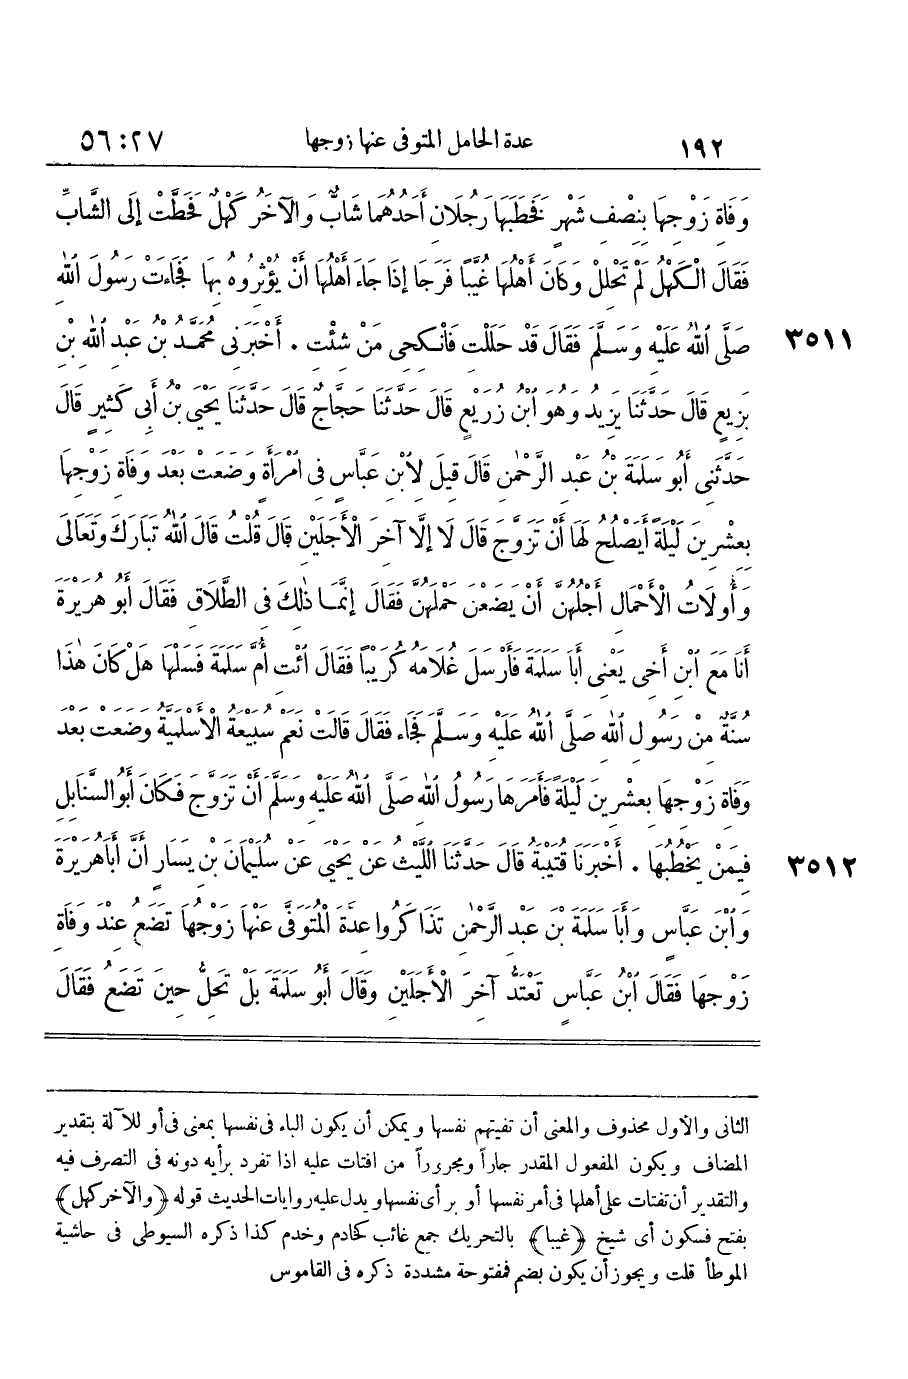 ١٩٢ عدة الحامل المتوفى عنها زوجها ٢٧:٥٦
وَفَاةِ زَوْجِهَا بِنِصْفِ شَهْرٍ فَخَطَبَهَا رَجُلَانِ أَحَدُهُمَا شَابٌّ وَالْآخَرُ كَهْلٌ فَحَطَّتْ إِلَى الشَّابِّ
فَقَالَ الْكَهْلُ لَمْ تَحْلِلْ وَكَانَ أَهْلُهَا غُيَّبًا فَرَجَا إِذَا جَاءَ أَهْلُهَا أَنْ يُؤْثِرُوهُ بِهَا فَجَاءَتْ رَسُولَ اللهِ
صَلَّى اللهُ عَلَيْهِ وَسَلَّمَ فَقَالَ قَدْ حَلَلْتِ فَانْكِحِى مَنْ شِئْتِ . أَخْبَرَنِى مُحَمَّدُ بْنُ عَبْدِ اللهِ بْنِ ٣٥١١
بَزِيعٍ قَالَ حَدَّثَنَا يَزِيدُ وَهُوَ ابْنُ زُرَيْعٍ قَالَ حَدَّثَنَا حَجَّاجٌ قَالَ حَدَّثَنَا يَحْيَى بْنُ أَبِى كَثِيرٍ قَالَ
حَدَّثَنِى أَبُو سَلَمَةَ بْنُ عَبْدِ الرَّحْمٰنِ قَالَ قِيلَ لِابْنِ عَبَّاسٍ فِى امْرَأَةٍ وَضَعَتْ بَعْدَ وَفَاةِ زَوْجِهَا
بِعِشْرِينَ لَيْلَةً أَيَصْلُحُ لَهَا أَنْ تَزَوَّجَ قَالَ لَا إِلَّا آخِرَ الْأَجَلَيْنِ قَالَ قُلْتُ قَالَ اللهُ تَبَارَكَ وَتَعَالَى
وَأُولَاتُ الْأَحْمَالِ أَجَلُهُنَّ أَنْ يَضَعْنَ حَمْلَهُنَّ فَقَالَ إِنَّمَا ذٰلِكَ فِى الطَّلَاقِ فَقَالَ أَبُو هُرَيْرَةَ
أَنَا مَعَ ابْنِ أَخِى يَعْنِى أَبَا سَلَمَةَ فَأَرْسَلَ غُلَامَهُ كُرَيْبًا فَقَالَ ائْتِ أُمَّ سَلَمَةَ فَسَلْهَا هَلْ كَانَ هٰذَا
سُنَّةً مِنْ رَسُولِ اللهِ صَلَّى اللهُ عَلَيْهِ وَسَلَّمَ فَجَاءَ فَقَالَ قَالَتْ نَعَمْ سُبَيْعَةُ الْأَسْلَمِيَّةُ وَضَعَتْ بَعْدَ
وَفَاةِ زَوْجِهَا بِعِشْرِينَ لَيْلَةً فَأَمَرَهَا رَسُولُ اللهِ صَلَّى اللهُ عَلَيْهِ وَسَلَّمَ أَنْ تَزَوَّجَ فَكَانَ أَبُو السَّنَابِلِ
فِيمَنْ يَخْطُبُهَا . أَخْبَرَنَا قُتَيْبَةُ قَالَ حَدَّثَنَا اللَّيْثُ عَنْ يَحْيَى عَنْ سُلَيْمَانَ بْنِ يَسَارٍ أَنَّ أَبَا هُرَيْرَةَ ٣٥١٢
وَابْنَ عَبَّاسٍ وَأَبَا سَلَمَةَ بْنَ عَبْدِ الرَّحْمٰنِ تَذَاكَرُوا عِدَّةَ الْمُتَوَفَّى عَنْهَا زَوْجُهَا تَضَعُ عِنْدَ وَفَاةِ
زَوْجِهَا فَقَالَ ابْنُ عَبَّاسٍ تَعْتَدُّ آخِرَ الْأَجَلَيْنِ وَقَالَ أَبُو سَلَمَةَ بَلْ تَحِلُّ حِينَ تَضَعُ فَقَالَ
الثانى والأول محذوف والمعنى أن تفيتهم نفسها ويمكن أن يكون الباء فى نفسها بمعنى فى أو للآلة بتقدير
المضاف ويكون المفعول المقدر جاراً ومجروراً من افتات عليه اذا تفرد برأيه دونه فى التصرف فيه
والتقدير أن تفتات على أهلها فى أمر نفسها أو برأى نفسها ويدل عليه روايات الحديث قوله ﴿والآخر كهل﴾
بفتح فسكون أى شيخ ﴿غيبا﴾ بالتحريك جمع غائب كخادم وخدم كذا ذكره السيوطى فى حاشية
الموطأ قلت ويجوز أن يكون بضم فمفتوحة مشددة ذكره فى القاموس